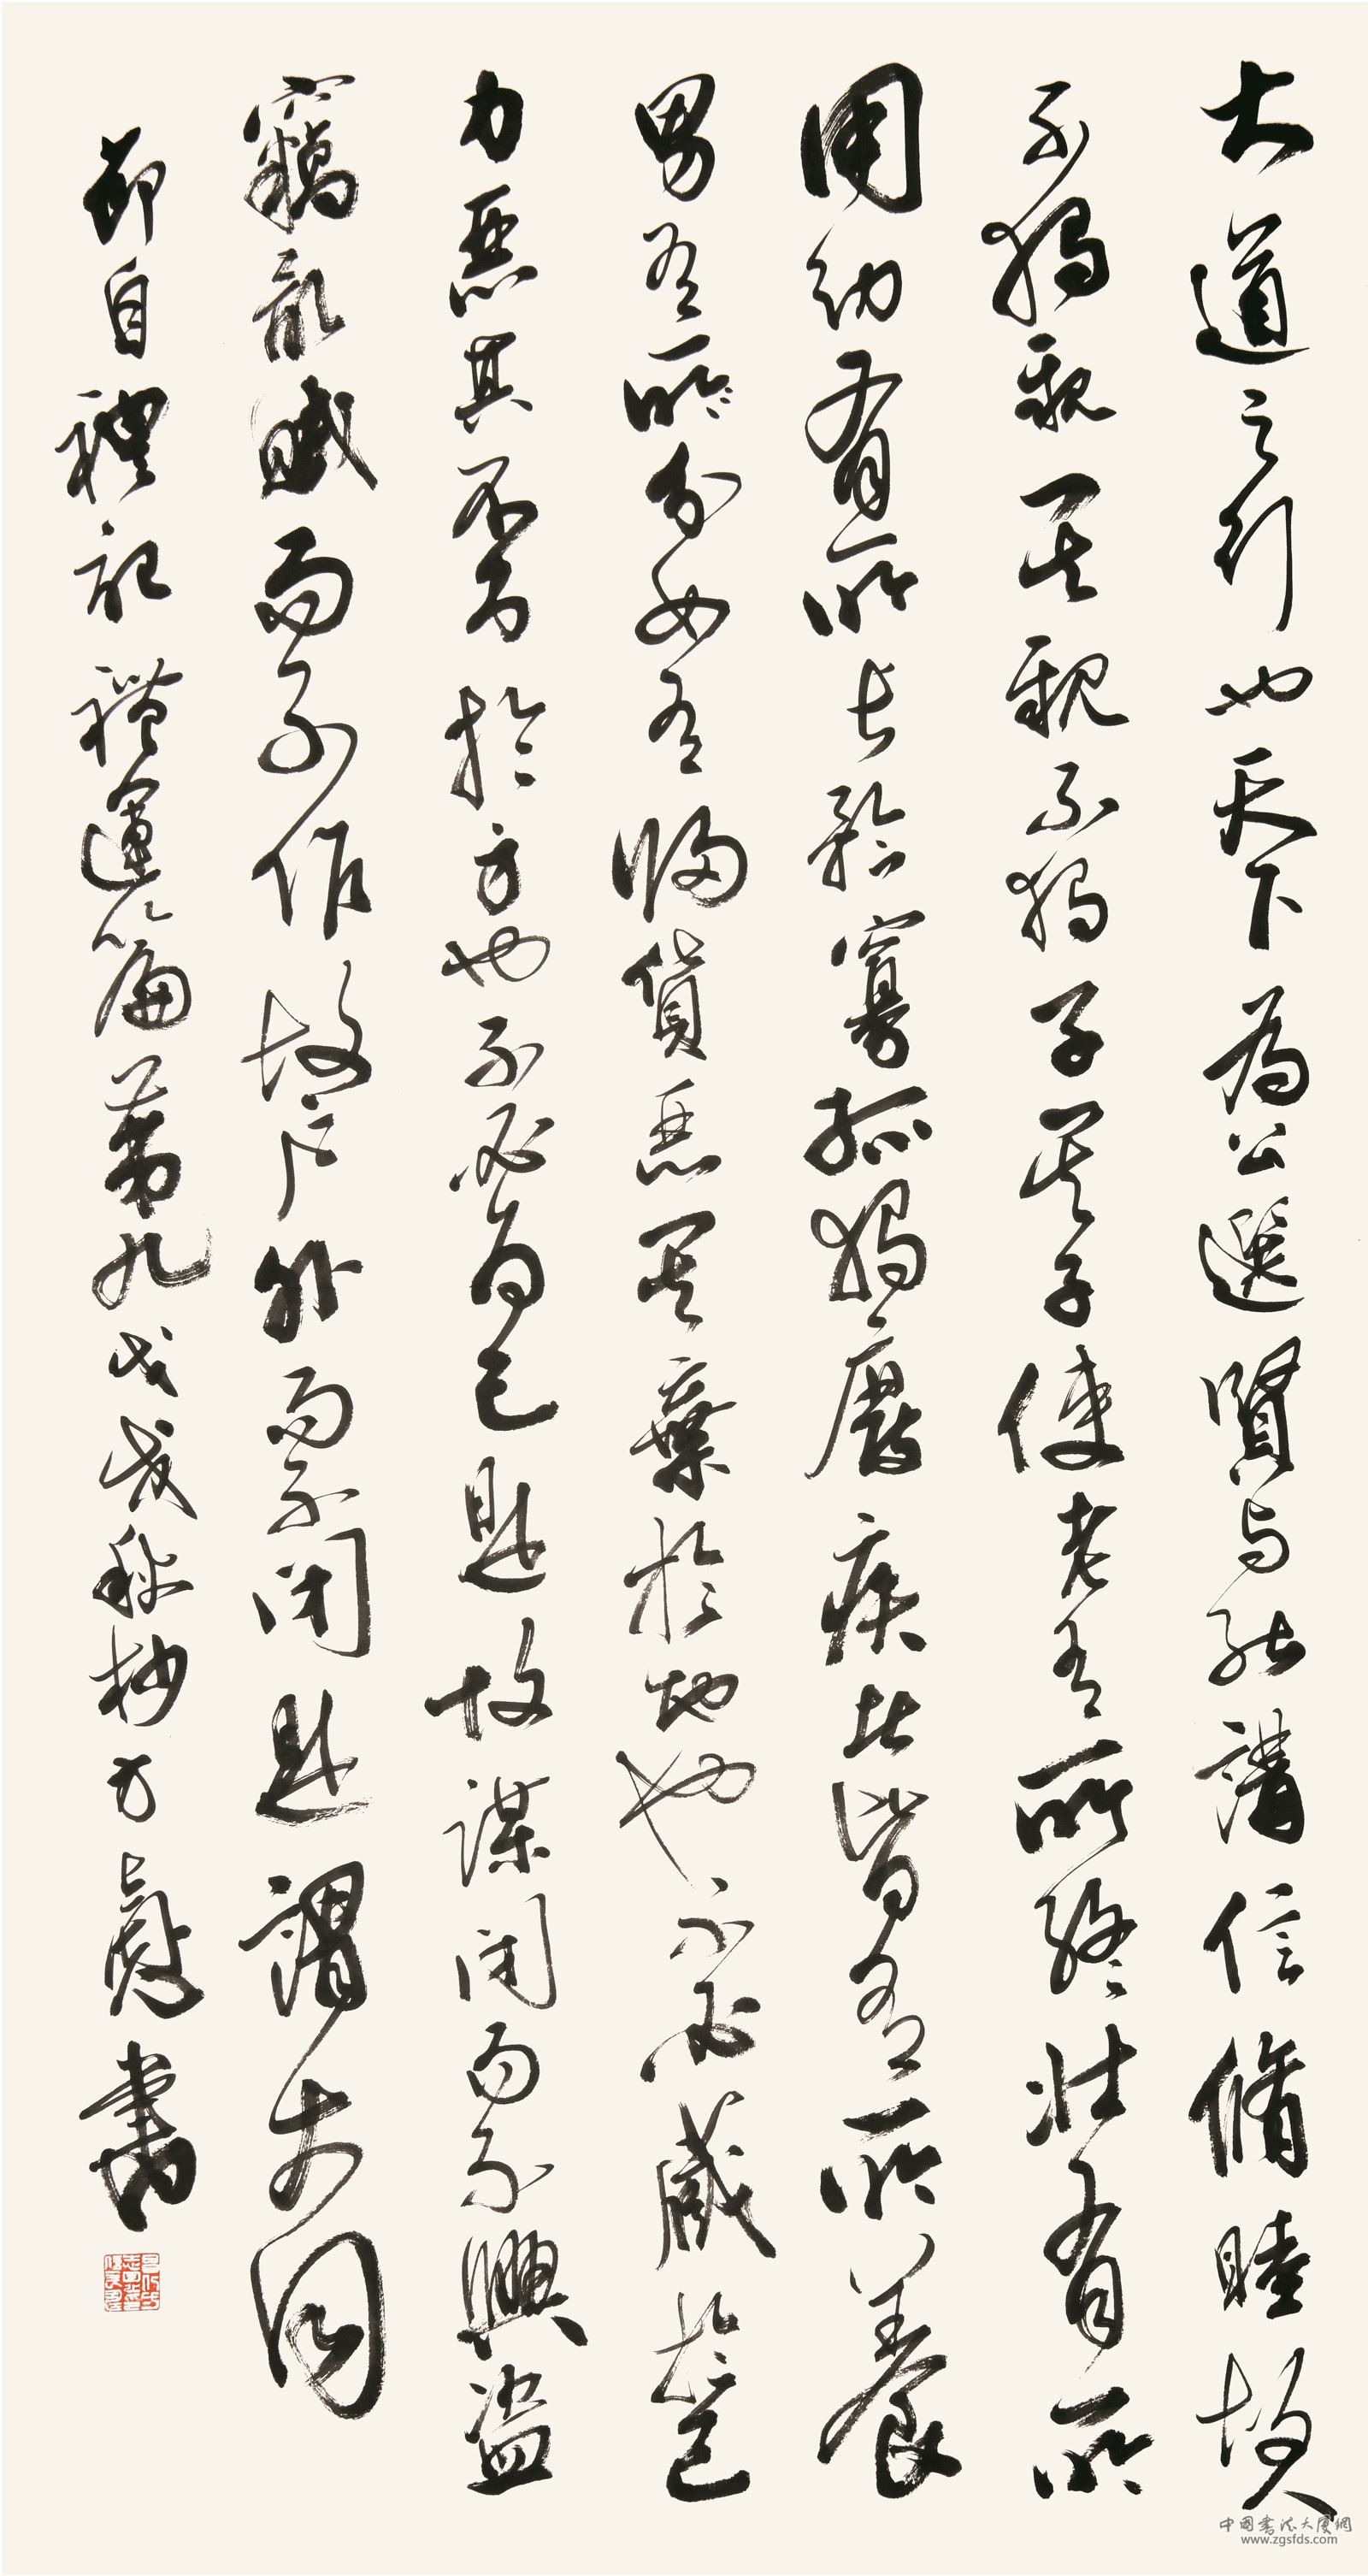 大道之行也天下為公選賢与能講信脩睦故人
不獨親其親不獨子其子使老有所終壯有所
用幼有所長矜寡孤獨廢疾者皆有所養
男有所分女有歸貨惡其棄於地也不必藏於己
力惡其不出於身也不必為己是故謀閉而不興盜
竊亂賊而不作故戶外而不閉是謂大同
節自禮記禮運篇第九戊戌秋杪方書
中国書法大廈網
www.zgsfds.com